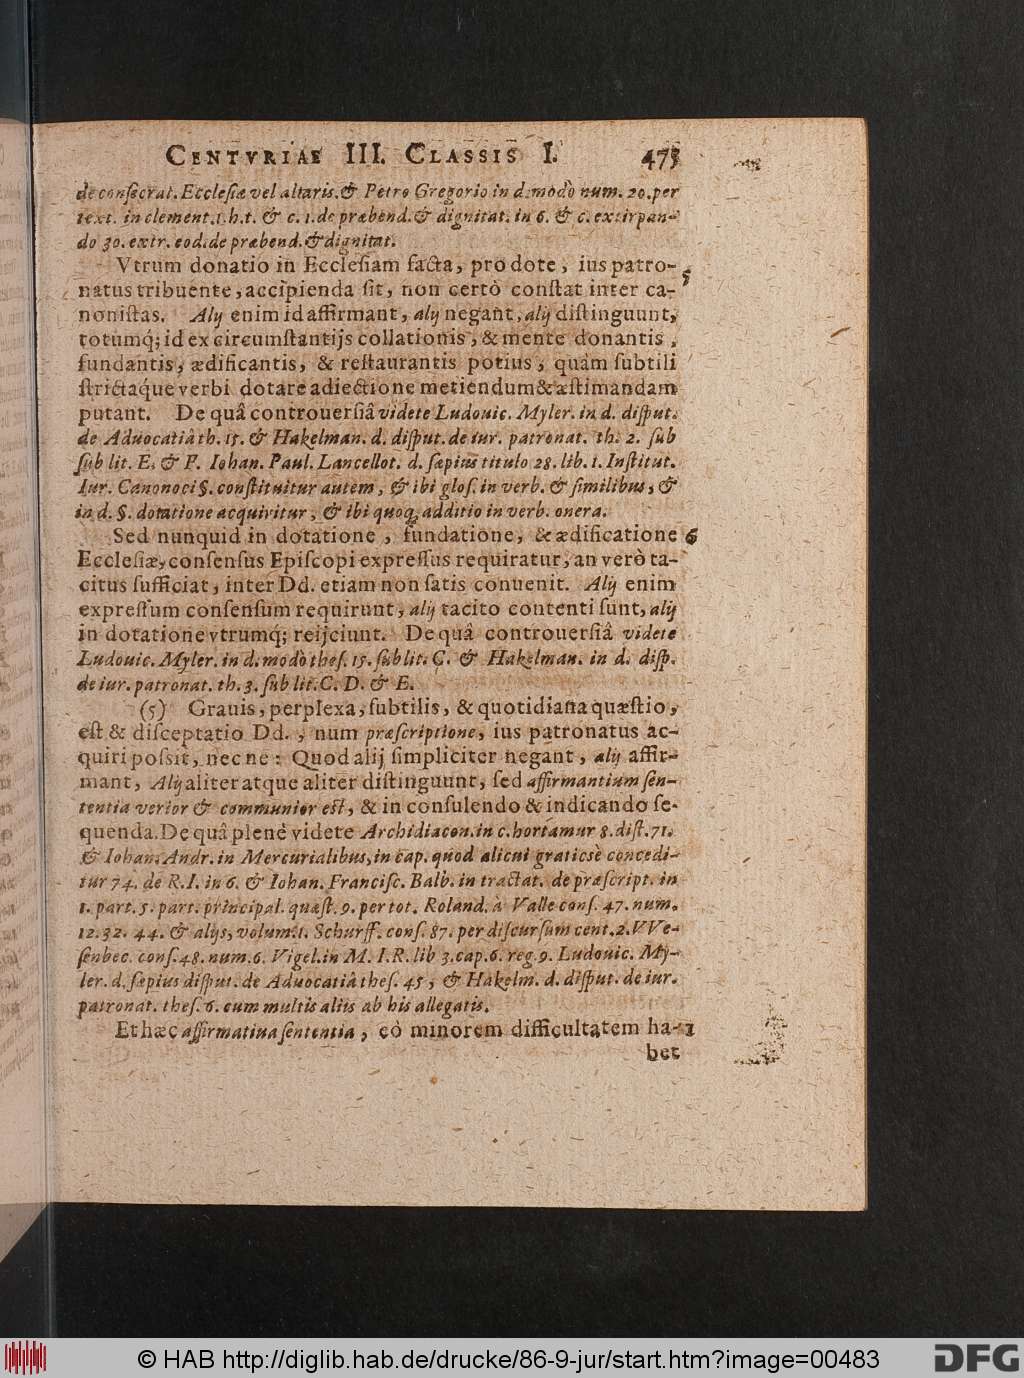 CENTVRIAE III. CLASSIS I. 475
de consecrat. Ecclesiæ vel altaris. & Petro Gregorio in d. modò num. 20. per
text. in clement. 1. h. t. & c. 1. de præbend. & dignitat. in 6. & c. extirpan-
do 30. extr. eod. de præbend. & dignitat.
Vtrum donatio in Ecclesiam facta, pro dote, ius patro- 5
natus tribuente, accipienda sit, non certò constat inter ca-
nonistas. Alij enim id affirmant, alij negant, alij distinguunt,
totumq́; id ex circumstantijs collationis, & mente donantis,
fundantis, ædificantis, & restaurantis potius, quàm subtili
strictaq́ue verbi dotare adiectione metiendum & æstimandam
putant. De quâ controuersiâ videte Ludouic. Myler. in d. disput.
de Aduocatiâ th. 15. & Hakelman. d. disput. de iur. patronat. th. 2. sub
sub lit. E. & F. Iohan. Paul. Lancellot. d. sæpius titulo 28. lib. 1. Institut.
Iur. Canonoci §. constituitur autem, & ibi glos. in verb. & similibus, &
in d. §. dotatione acquiritur, & ibi quoq; additio in verb. onera.
Sed nunquid in dotatione, fundatione, & ædificatione 6
Ecclesiæ, consensus Episcopi expressus requiratur, an verò ta-
citus sufficiat, inter Dd. etiam non satis conuenit. Alij enim
expressum consensum requirunt, alij tacito contenti sunt, alij
in dotatione vtrumq́; reijciunt. De quâ controuersiâ videte
Ludouic. Myler. in d. modò thes. 15. sub lit. C. & Hakelman. in d. disp.
de iur. patronat. th. 3. sub lit. C. D. & E.
(5) Grauis, perplexa, subtilis, & quotidiana quæstio,
est & disceptatio Dd., num præscriptione, ius patronatus ac-
quiri possit, nec ne: Quod alij simpliciter negant, alij affir-
mant, Alij aliter atque aliter distinguunt, sed affirmantium sen-
tentia verior & communior est, & in consulendo & indicando se-
quenda. De quâ plenè videte Archidiacon. in c. hortamur 8. dist. 71.
& Iohan. Andr. in Mercurialibus, in cap. quod alicui graticsè concedi-
tur 74. de R. I. in 6. & Iohan. Francisc. Balb. in tractat. de præscript. in
1. part. 5. part. principal. quæst. 9. per tot. Roland. à Valle cons. 47. num.
12. 32. 44. & alijs, volum. 1. Schurff. cons. 87. per discursum cent. 2. VVe-
senbec. cons. 48. num. 6. Vigel. in M. I. R. lib 3. cap. 6. reg. 9. Ludouic. My-
ler. d. sæpius disput. de Aduocatiâ thes. 45, & Hakelm. d. disput. de iur.
patronat. thes. 6. cum multis aliis ab his allegatis.
Et hæc affirmatiua sententia, eò minorem difficultatem ha- 1
bet
© HAB http://diglib.hab.de/drucke/86-9-jur/start.htm?image=00483
DFG